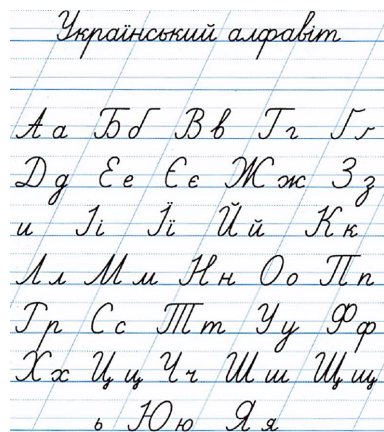 Український алфавіт
Аа Бб Вв Гг Ґґ
Дд Ее Єє Жж Зз
и Іі Її Йй Кк
Лл Мм Нн Оо Пп
Рр Сс Тт Уу Фф
Хх Цц Чч Шш Щщ
ь Юю Яя